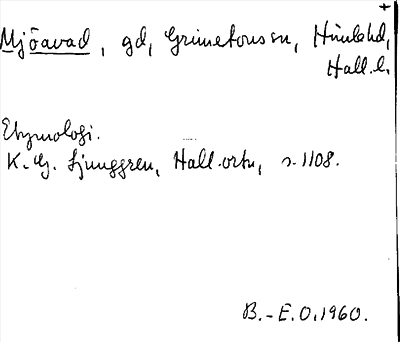 +
Mjöavad, gd, Grimetons sn, Himle hd,
Hall. l.
Etymologi.
K. G. Ljunggren, Hall. ortn, s. 1108.
B.-E. O. 1960.